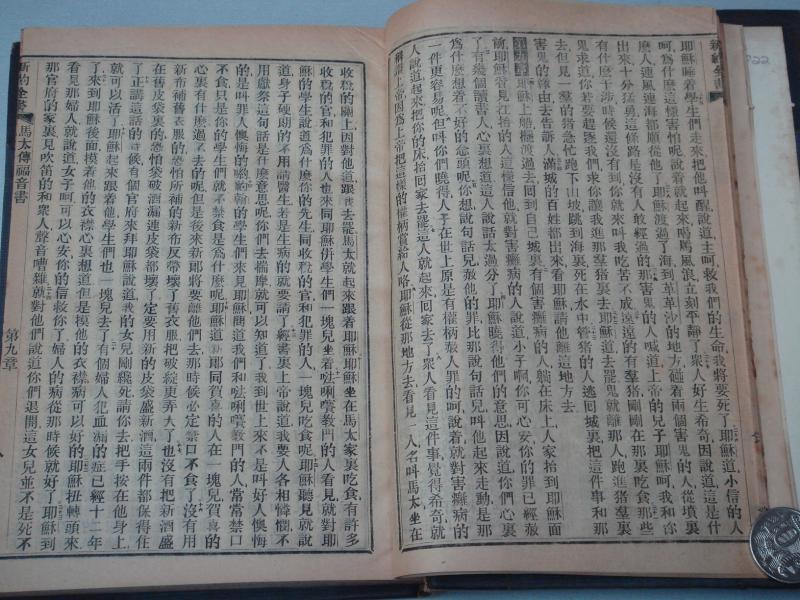 新約全書
耶穌睡着學生們走來把他叫醒說道主呵救我們的生命我將要死了耶穌道小信的人
呵爲什麼這樣害怕呢說着就起來喝罵風浪立刻平靜了衆人好生希奇因說道這是什
麼人連風連海都順從他了耶穌渡過了海到革革沙的地方碰着兩個害鬼的人從墳裏
出來十分猛勇這條路是沒有人敢經過的那害鬼的人喊道上帝的兒子耶穌呵我和你
有什麼干涉時候還沒有到你就來叫我吃苦不成遠遠的有羣猪剛剛在那裏吃食那些
鬼求道你若要起逐我們求你讓我進那羣猪裏去耶穌道去罷鬼就離那人跑進猪羣裏
去但見一羣的猪急忙跑下山坡跳到海裏死在水中管猪的人逃回城裏把這件事和那
害鬼的緣由去告訴人滿城的百姓都出來看見耶穌請他離這地方去
第九章耶穌上船纔渡過去回到自己城裏有個害癱病的人躺在床上人家抬到耶穌面
前耶穌看見扛抬的人這樣信他就對害癱病的人說道小子啊你可心安你的罪已經赦
了有幾個讀書人心裏想道這人說話太過分了耶穌曉得他們的意思因說道你們心裏
爲什麼想着不好的念頭呢你想說句話兒赦他的罪比那說句話兒叫他起來走動是那
一件更容易呢但叫你們曉得人子在世上原是有權柄赦人罪的呵說着就對害癱病的
人說道起來把你的床抬回家去罷這人就起來回家去了衆人看見這件事覺得希奇就
稱讚上帝因爲上帝把這樣的權柄賞給人咯耶穌從那地方去看見一人名叫馬太坐在
收稅的關上因對他道跟我去罷馬太就起來跟着耶穌耶穌坐在馬太家裏吃食有許多
收稅的官和犯罪的人也來同耶穌併學生們一塊兒坐着㕸唎㘔教門的人看見就對耶
穌的學生說道爲什麼你的先生同收稅的官和犯罪的人一塊兒吃食呢耶穌聽見就說
道身子硬朗的不用請醫生若是生病的就要請了經書裏上帝說道我要人各相憐憫不
用獻祭這句話是什麼意思呢你們去揣摩就可以知道了我到世上來不是叫好人懊悔
的是叫罪人懊悔的喲翰的學生們來見耶穌問道我們和㕸唎㘔教門的人常常禁口
不食只是你的學生們就不禁食是爲什麼呢耶穌道新郎同賀喜的人在一塊兒賀喜的
心裏有什麼過不去的呢但是後來新郎將要離他們去那時候必定禁口不食了沒有用
新布補舊衣服的恐怕所補的新布反帶壞了舊衣服把破綻更弄大了也沒有把新酒盛
在舊皮袋裏的恐怕袋破酒漏連皮袋都壞了定要用新的皮袋盛新酒這兩件都保得住
了正講這話的時候有個官府來拜耶穌說道我的女兒剛纔死請你去把手按在他身上
就可以活了耶穌起來跟着他去學生們也一塊兒去了有個婦人犯血漏的症已經十二年
了來到耶穌後面摸着他的衣襟心裏想道但是摸他的衣襟病可以好的耶穌扭轉頭來
看見那婦人就說道女子呵可以心安你的信救你了婦人的病從那時候就好了耶穌到
那官府的家裏見吹笛的和衆人聲音嘈雜就對他們說道你們退開這女兒並不是死不
新約全書
馬太傳福音書
第九章